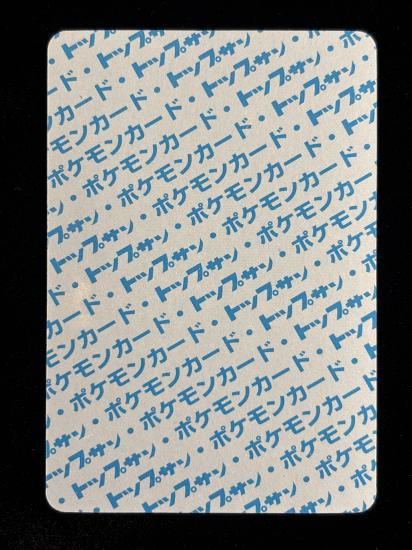 トップサン・
カード・トップサン・ポケ
モンカード・トップサン・ポケモン
ポケモンカード・トップサン・ポケモンカード
・ポケモンカード・トップサン・
トップサン・ポケモンカード・トップサン
・トップサン・ポケモンカード・
カード・トップサン・ポケモンカード
ケモンカード・トップサン・ポケモン
・ポケモンカード・トップサン・
トップサン・ポケモンカード・トップサン
・トップサン・ポケモンカード・
・ポケモンカード
トップサン